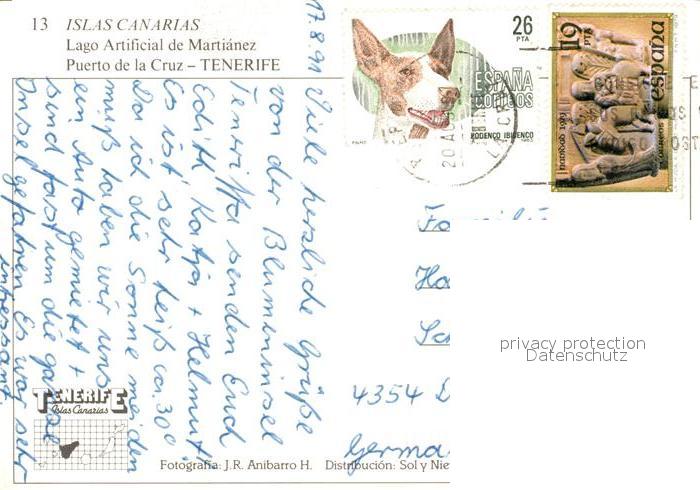 13 ISLAS CANARIAS
Lago Artificial de Martiánez
Puerto de la Cruz – TENERIFE
17.8.91
Viele herzliche Grüße
von der Blumeninsel
Teneriffa senden Euch
Edith Katja + Helmut
Es ist sehr heiß ca. 30°
Da ich die Sonne meiden
muß haben wir uns
ein Auto gemietet +
sind fast um die ganze
Insel gefahren Es war sehr
interessant
26
PTA
ESPAÑA
CORREOS
PODENCO IBICENCO
1983
19
PTS
españa
correos
navidad 1983
20 AGO
Familie
Ha
Sc
4354 D
Germa
privacy protection
Datenschutz
TENERIFE
Islas Canarias
Fotografía: J.R. Anibarro H. Distribución: Sol y Nie